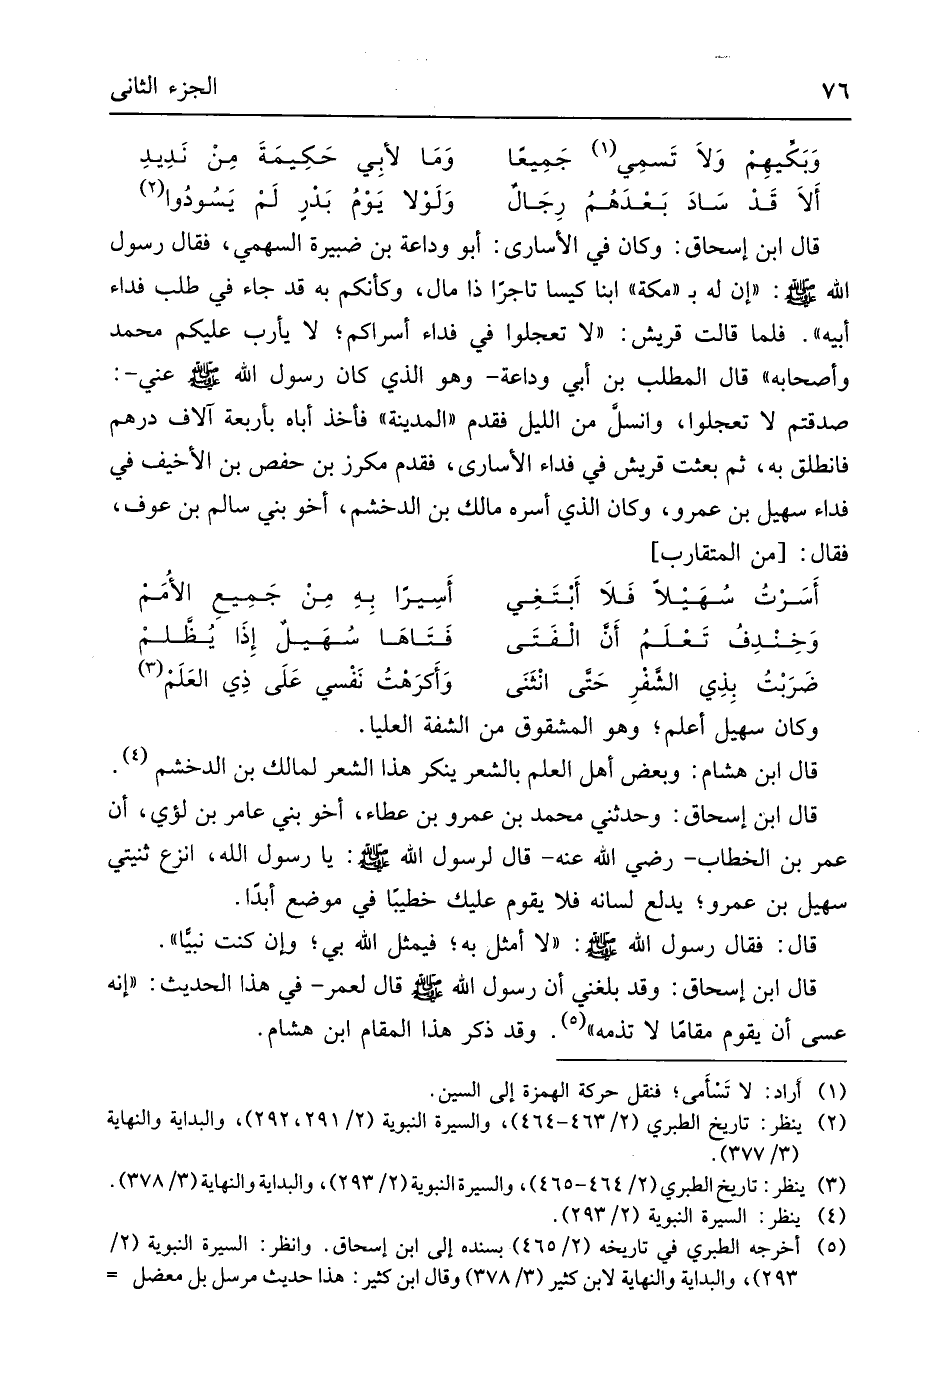 ٧٦ الجزء الثانى
وَبَكِّيهِمْ وَلاَ تَسمِي(١) جَمِيعًا وَمَا لأبِي حَكِيمَةَ مِنْ نَدِيدِ
أَلاَ قَدْ سَادَ بَعْدَهُمُ رِجَالٌ وَلَوْلا يَوْمُ بَدْرٍ لَمْ يَسُودُوا(٢)
قال ابن إسحاق: وكان في الأسارى: أبو وداعة بن ضبيرة السهمي، فقال رسول
الله ﷺ: «إن له بـ «مكة» ابنا كيسا تاجرًا ذا مال، وكأنكم به قد جاء في طلب فداء
أبيه». فلما قالت قريش: «لا تعجلوا في فداء أسراكم؛ لا يأرب عليكم محمد
وأصحابه» قال المطلب بن أبي وداعة- وهو الذي كان رسول الله ﷺ عني-:
صدقتم لا تعجلوا، وانسلَّ من الليل فقدم «المدينة» فأخذ أباه بأربعة آلاف درهم
فانطلق به، ثم بعثت قريش في فداء الأسارى، فقدم مكرز بن حفص بن الأخيف في
فداء سهيل بن عمرو، وكان الذي أسره مالك بن الدخشم، أخو بني سالم بن عوف،
فقال: [من المتقارب]
أَسَرْتُ سُهَيْلاً فَلاَ أَبْتَغِي أَسِيرًا بِهِ مِنْ جَمِيعِ الأُمَمْ
وَخِنْدِفُ تَعْلَمُ أَنَّ الْفَتَى فَتَاهَا سُهَيلٌ إِذَا يُظَّلمْ
ضَرَبْتُ بِذِي الشَّفْرِ حَتَّى انْثَنَى وَأَكرَهْتُ نَفْسِي عَلَى ذِي العَلَمْ(٣)
وكان سهيل أعلم؛ وهو المشقوق من الشفة العليا.
قال ابن هشام: وبعض أهل العلم بالشعر ينكر هذا الشعر لمالك بن الدخشم (٤).
قال ابن إسحاق: وحدثني محمد بن عمرو بن عطاء، أخو بني عامر بن لؤي، أن
عمر بن الخطاب- رضي الله عنه- قال لرسول الله ﷺ: يا رسول الله، انزع ثنيتي
سهيل بن عمرو؛ يدلع لسانه فلا يقوم عليك خطيبًا في موضع أبدًا.
قال: فقال رسول الله ﷺ: «لا أمثل به؛ فيمثل الله بي؛ وإن كنت نبيًّا».
قال ابن إسحاق: وقد بلغني أن رسول الله ﷺ قال لعمر- في هذا الحديث: «إنه
عسى أن يقوم مقامًا لا تذمه»(٥). وقد ذكر هذا المقام ابن هشام.
(١) أراد: لا تَسْأَمى؛ فنقل حركة الهمزة إلى السين.
(٢) ينظر: تاريخ الطبري (٢/ ٤٦٣-٤٦٤)، والسيرة النبوية (٢/ ٢٩١، ٢٩٢)، والبداية والنهاية
(٣/ ٣٧٧).
(٣) ينظر: تاريخ الطبري (٢/ ٤٦٤-٤٦٥)، والسيرة النبوية (٢/ ٢٩٣)، والبداية والنهاية (٣/ ٣٧٨).
(٤) ينظر: السيرة النبوية (٢/ ٢٩٣).
(٥) أخرجه الطبري في تاريخه (٢/ ٤٦٥) بسنده إلى ابن إسحاق. وانظر: السيرة النبوية (٢/
٢٩٣)، والبداية والنهاية لابن كثير (٣/ ٣٧٨) وقال ابن كثير: هذا حديث مرسل بل معضل =